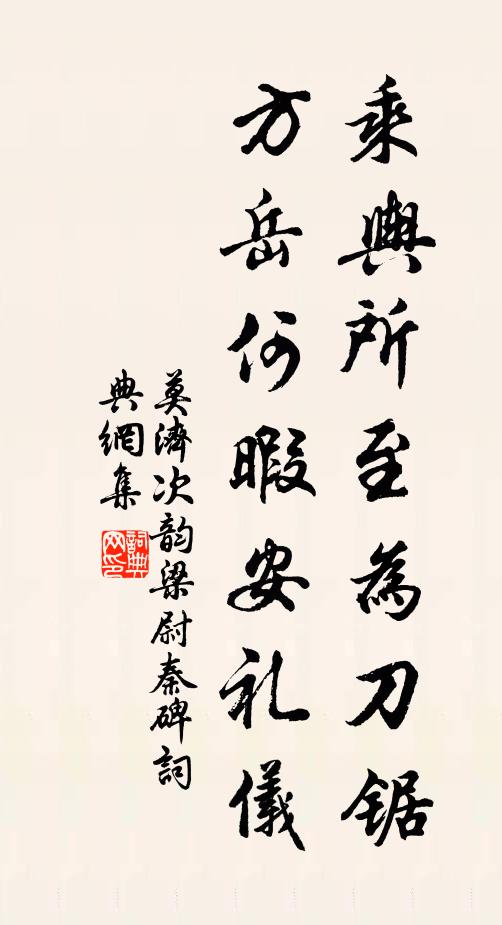 乘輿所至為刀锯
方岳何暇安礼儀
莫濟次韵梁尉秦碑詞
典網集
詞典网印